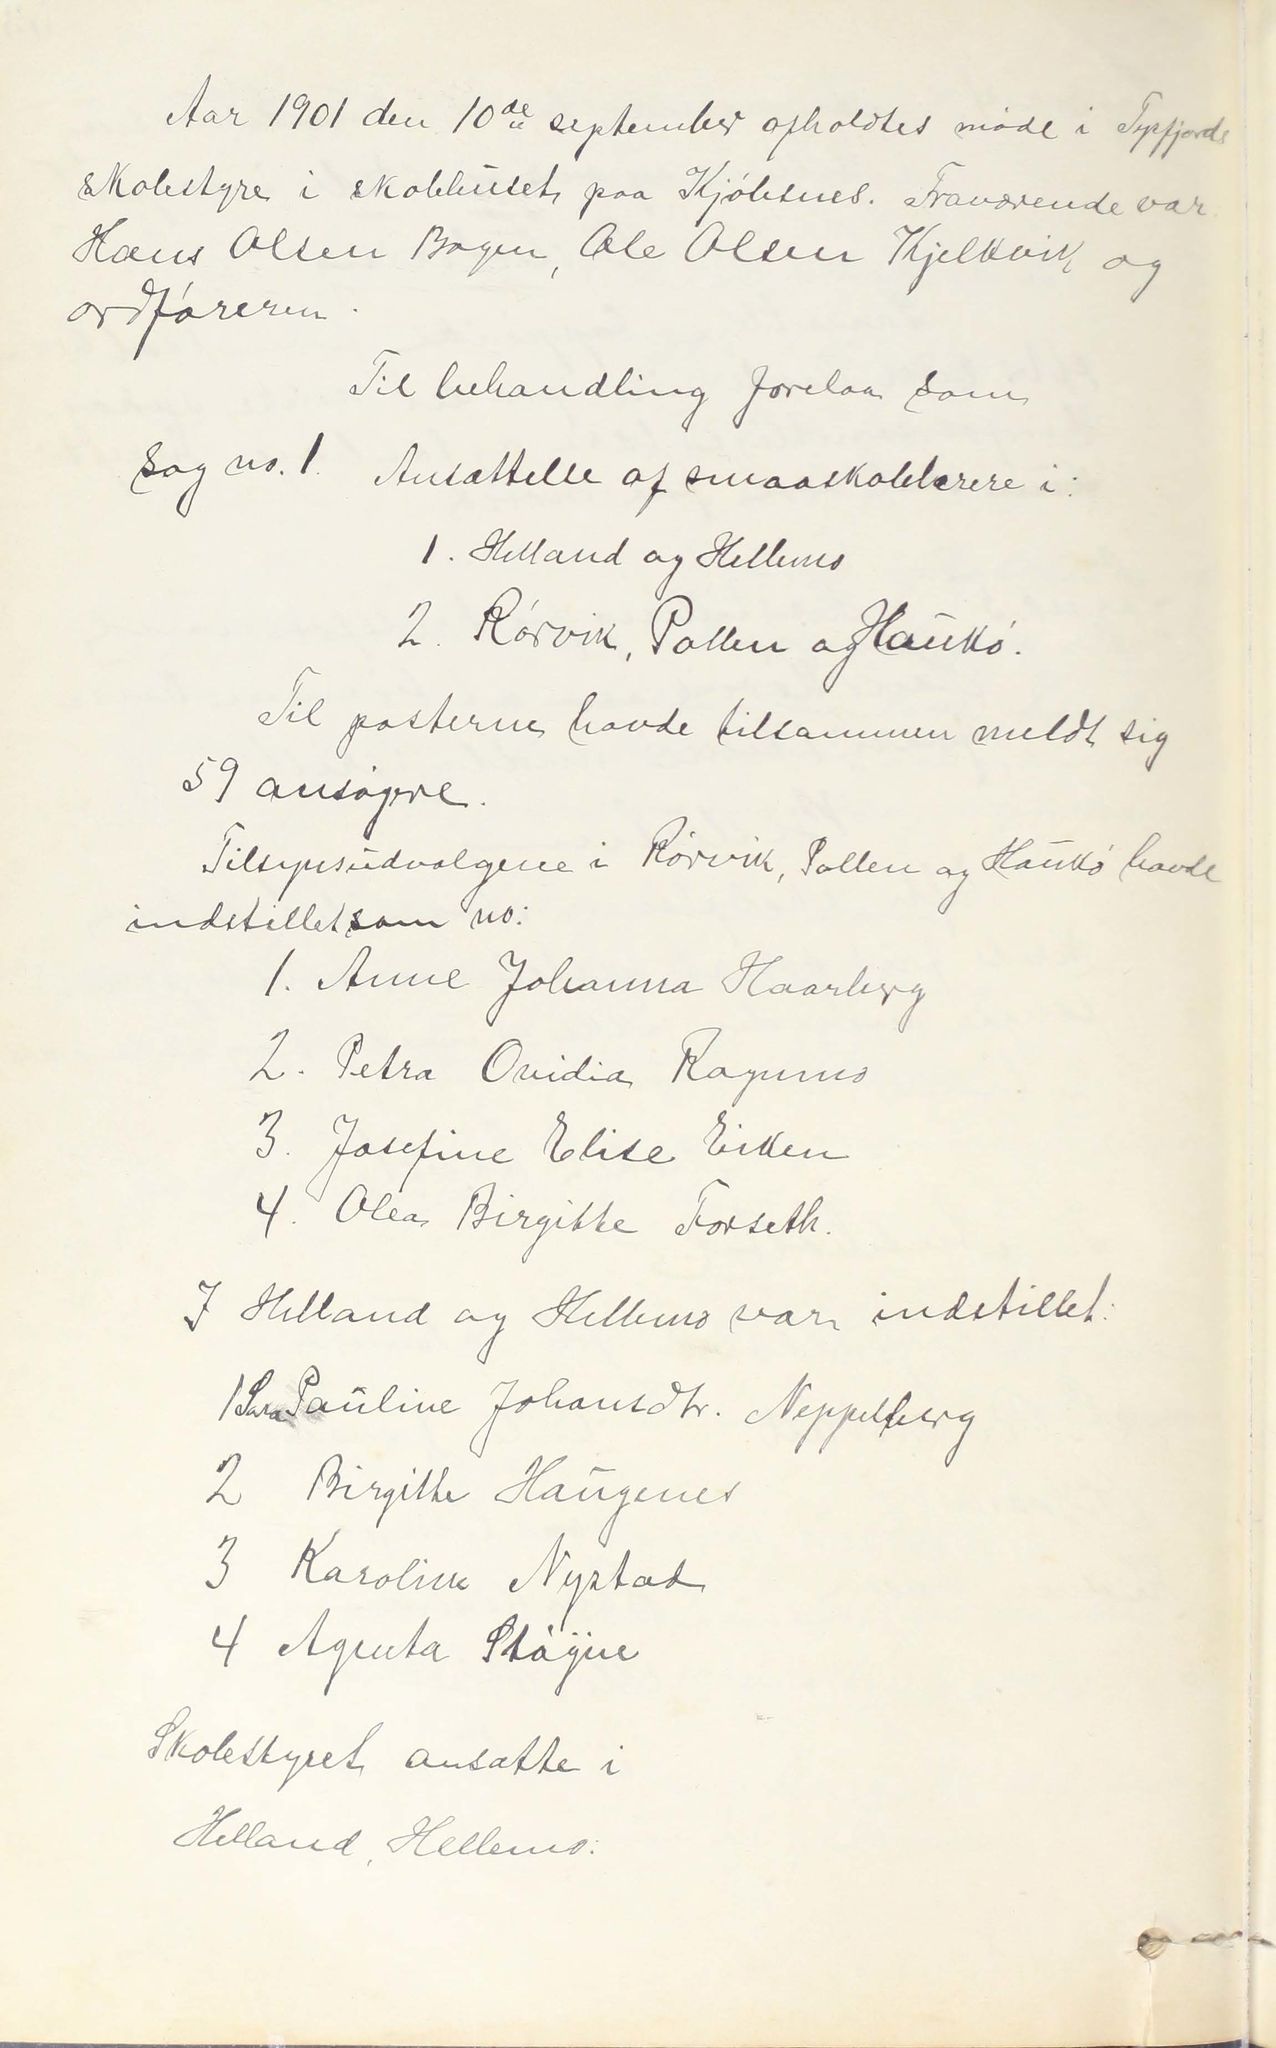 Aar 1901 den 10de september afholdtes møde i Tysfjords
skolestyre i skolehuset paa Kjøbsnes. Fraværende var
Hans Olsen Bogen, Ole Olsen Kjelkvik og
ordføreren.
Til behandling forelaa som
Sag no. 1. Ansættelse af smaaskolelærere i:
1. Helland og Hellemo
2. Rørvik, Pollen og Haukø.
Til posterne havde tilsammen meldt sig
59 ansøgere.
Tilsynsudvalgene i Rørvik, Pollen og Haukø havde
indstillet som no:
1. Anne Johanna Haarberg
2. Petra Ovidia Rognmo
3. Josefine Elise Eiken
4. Olea Birgitte Forseth.
I Helland og Hellemo var indstillet:
1 Sara Pauline Johansdtr. Neppelberg
2 Birgitte Haugenes
3 Karoline Nystad
4 Agneta Støyne
Skolestyret ansatte i
Helland, Hellemo: